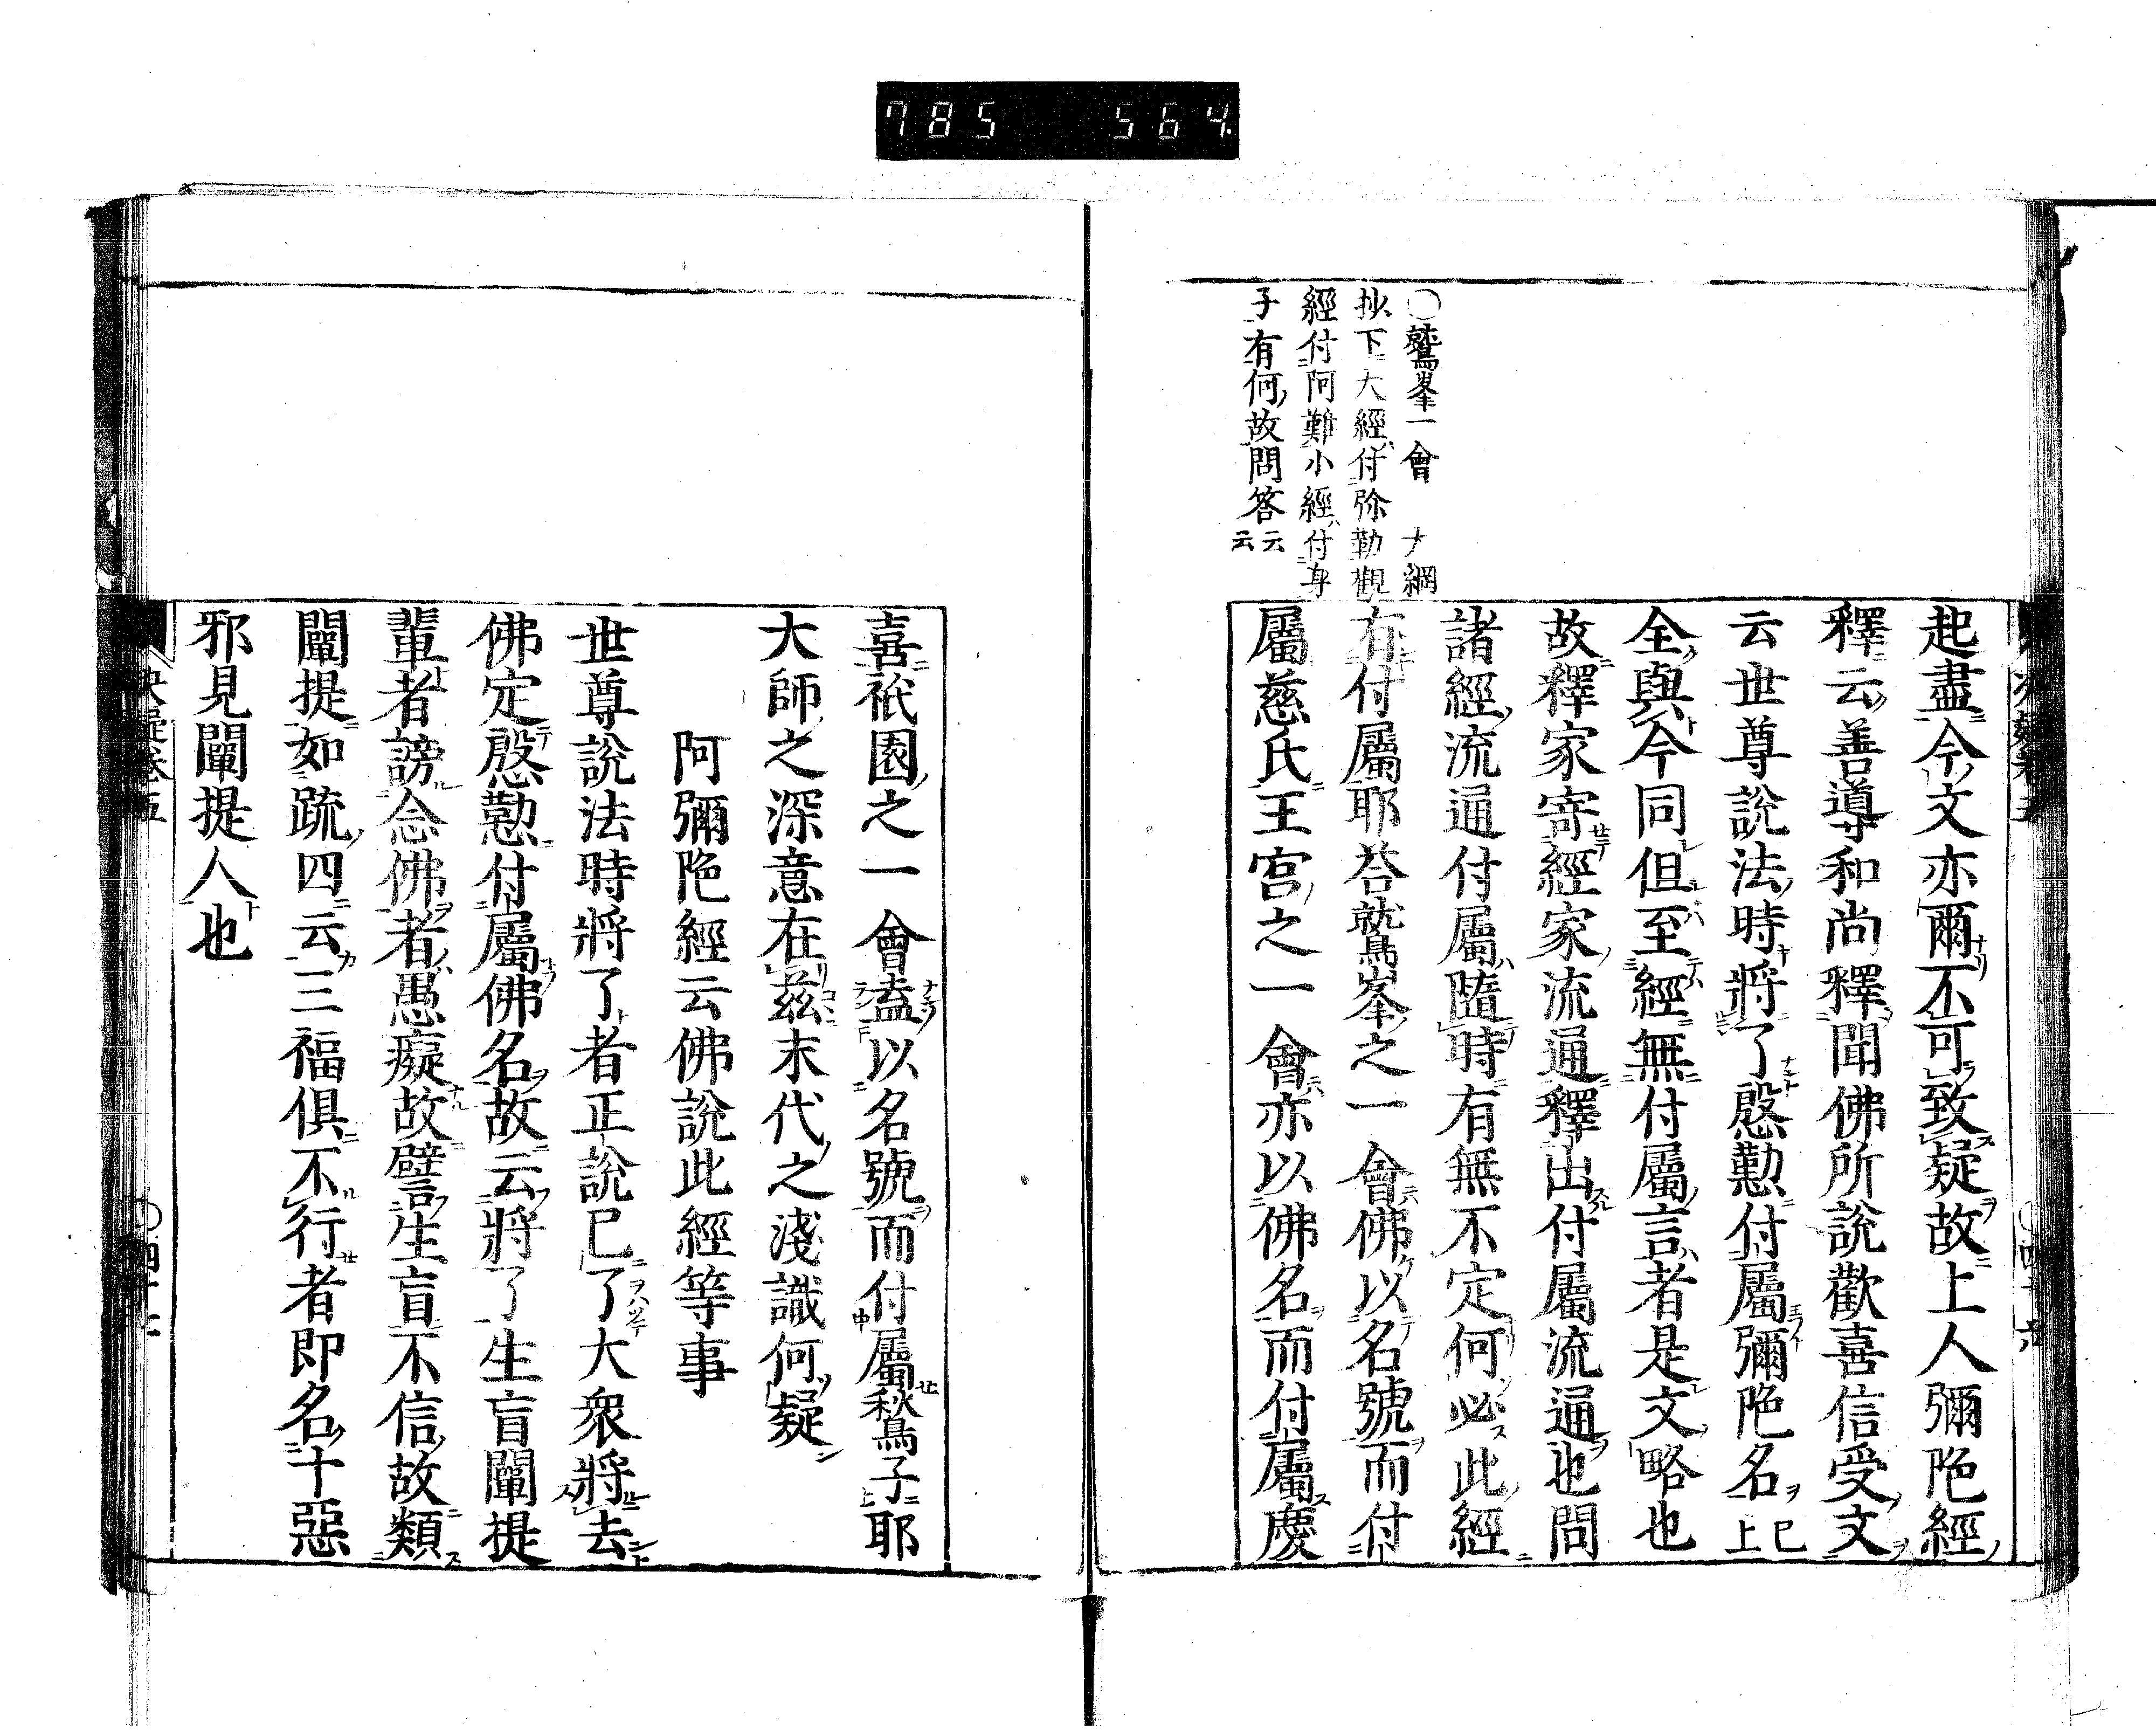 785 564.
○鷲峯一會 大綱
抄下大經付弥勒觀
經付阿難小經付身
子有何故問答云云
起盡今文亦爾不可致疑故上人彌陁經
釋云善導和尚釋聞佛所說歡喜信受文
云世尊說法時將了慇懃付屬彌陁名已上
全與今同但至經無付屬言者是文略也
故釋家寄經家流通釋出付屬流通也問
諸經流通付屬隨時有無不定何必此經
有付屬耶答鷲峯之一會佛以名號而付
屬慈氏王宮之一會亦以佛名而付屬慶
喜祇園之一會盍以名號而付屬鶖子耶
大師之深意在茲末代之淺識何疑
阿彌陁經云佛說此經等事
世尊說法時將了者正說已了大衆將去
佛定慇懃付屬佛名故云將了生盲闡提
輩者謗念佛者愚癡故譬生盲不信故類
闡提如疏四云三福俱不行者即名十惡
邪見闡提人也
決疑卷五